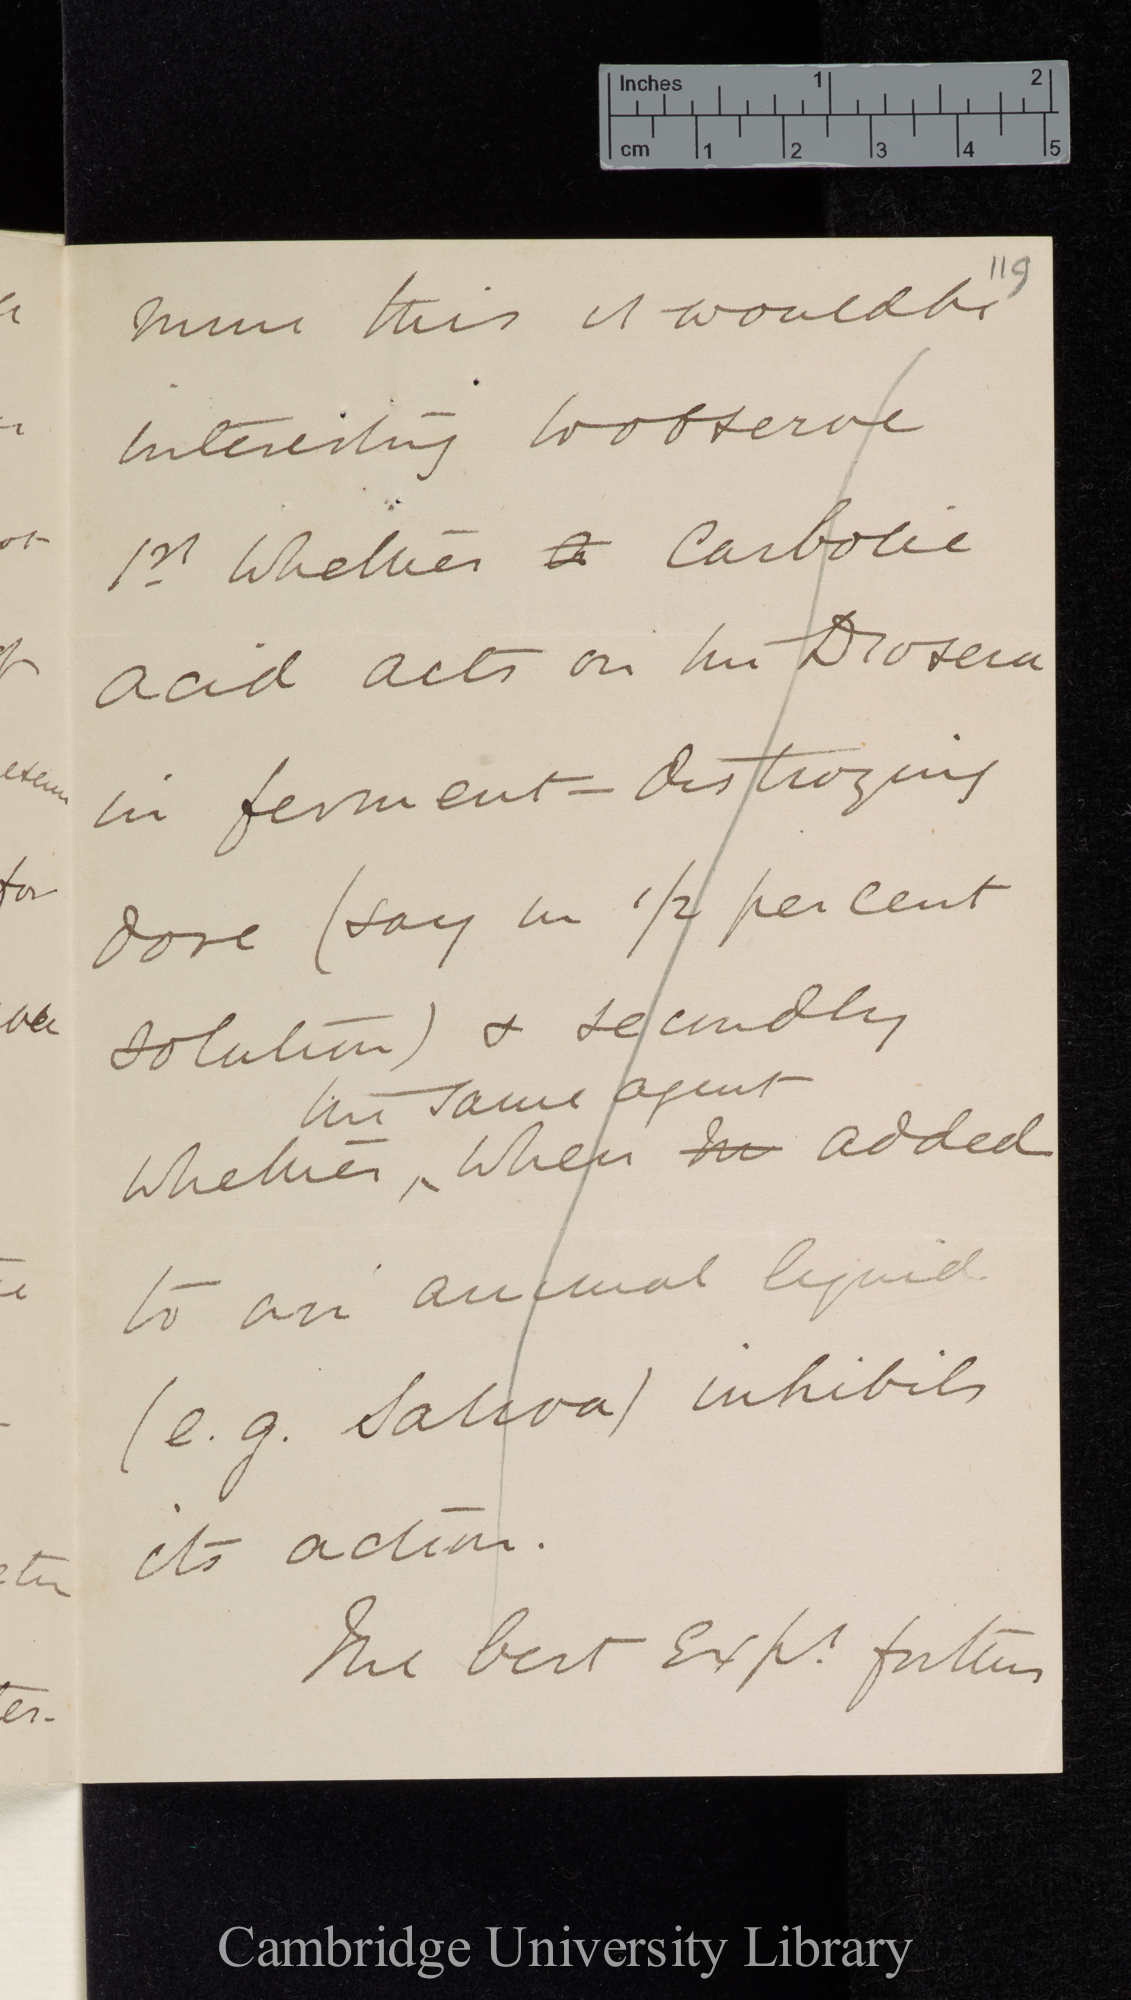 Inches 1 2
cm 1 2 3 4 5
119
mine this it would be
interesting to observe
1st Whether a Carbolic
acid acts on the Drosera
in ferment-destroying
dose (say in 1/2 per cent
solution) & secondly
the same agent
whether, when added
to an animal liquid
(e.g. Saliva) inhibits
its action.
The best Expt. for this
for
ter-
Cambridge University Library